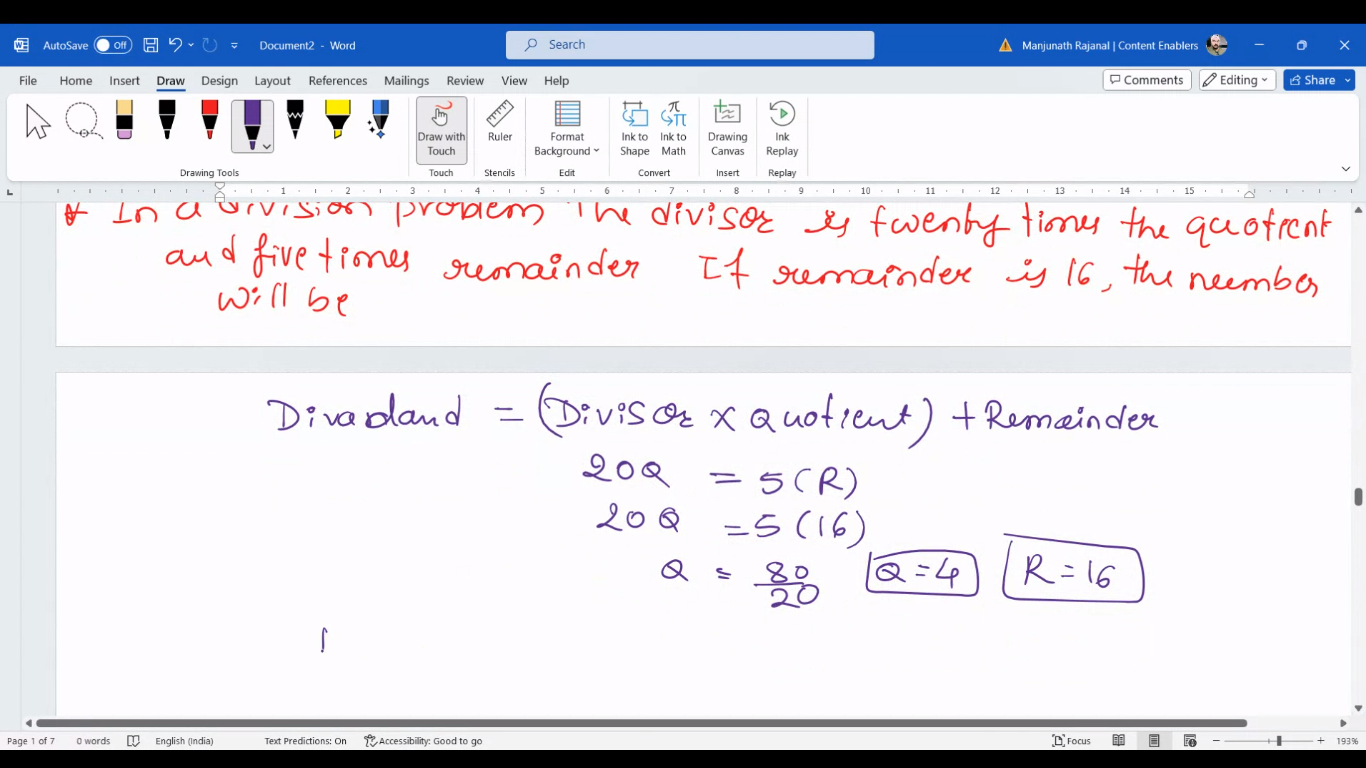 AutoSave Off Document2 - Word Search Manjunath Rajanal | Content Enablers
File Home Insert Draw Design Layout References Mailings Review View Help Comments Editing Share
Draw with Touch Ruler Format Background Ink to Shape Ink to Math Drawing Canvas Ink Replay
Drawing Tools Touch Stencils Edit Convert Insert Replay
1 2 3 4 5 6 7 8 9 10 11 12 13 14 15
* In a division problem The divisor is twenty times the quotient
and five times remainder If remainder is 16, the number
will be
= (Divisor X Quotient) + Remainder
20Q = 5(R)
20Q = 5(16)
Q = 80/20 Q = 4 R = 16
Page 1 of 7 0 words English (India) Text Predictions: On Accessibility: Good to go Focus 193%